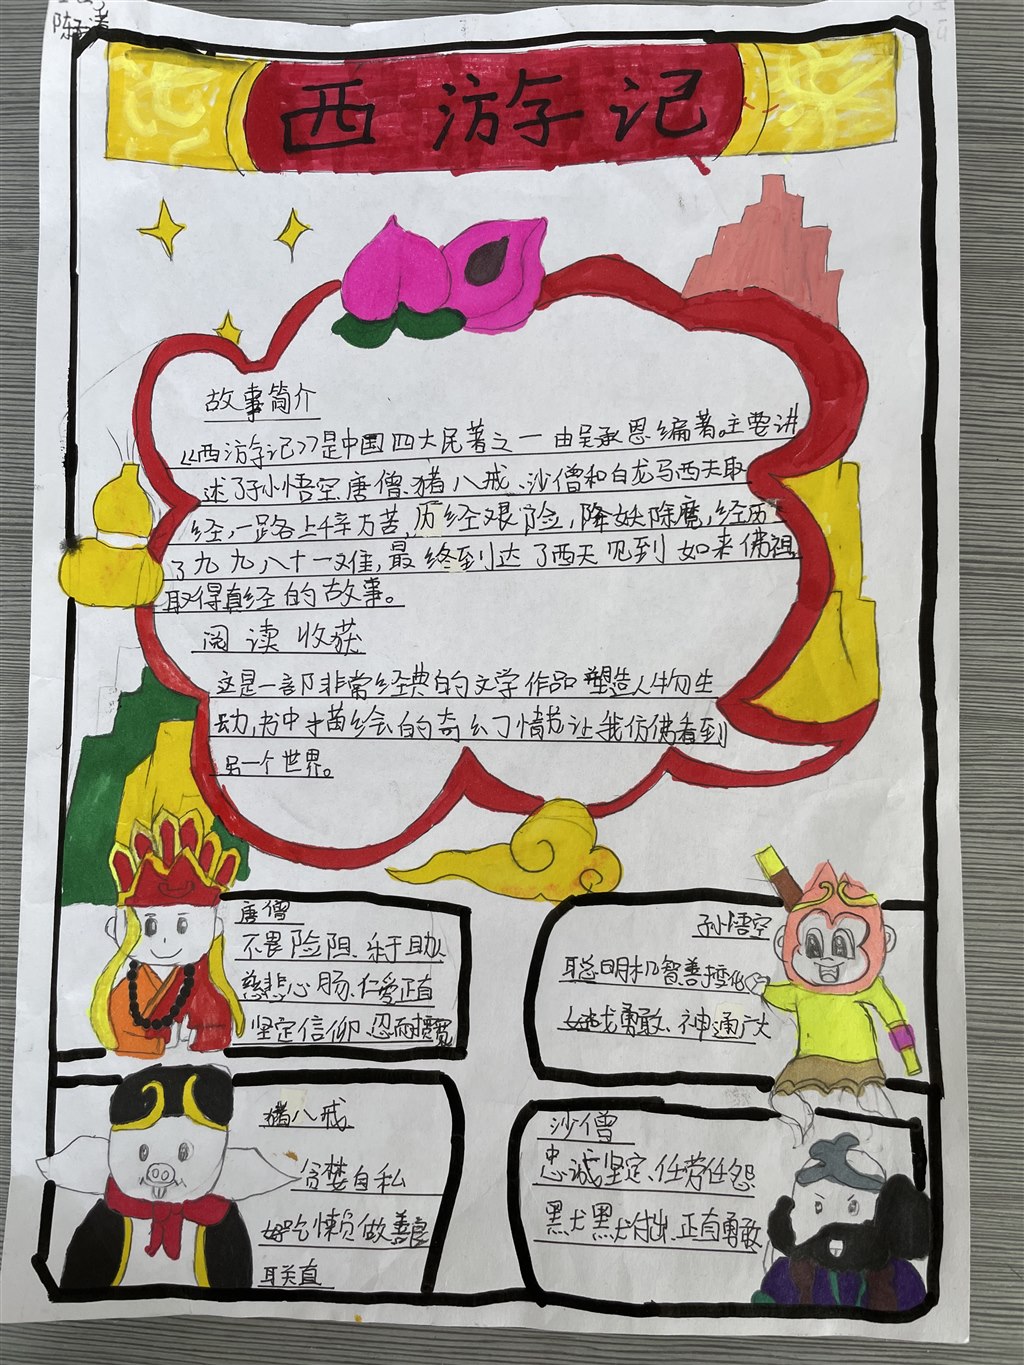 西游记
故事简介
《西游记》是中国四大民著之一由吴承恩编著。主要讲
述了孙悟空、唐僧、猪八戒、沙僧和白龙马西天取
经,一路上千辛万苦,历经艰险,降妖除魔,经历
了九九八十一难,最终到达了西天见到如来佛祖,
取得真经的故事。
阅读收获
这是一部非常经典的文学作品塑造人物生
动,书中描绘的奇幻情节让我仿佛看到
另一个世界。
唐僧
不畏险阻、乐于助人
慈悲心肠、仁爱正直
坚定信仰、忍耐宽
孙悟空
聪明机智善变化
好战勇敢、神通广大
猪八戒
贪婪自私
好吃懒做善良
耿直
沙僧
忠诚坚定、任劳任怨
默默付出、正直勇敢